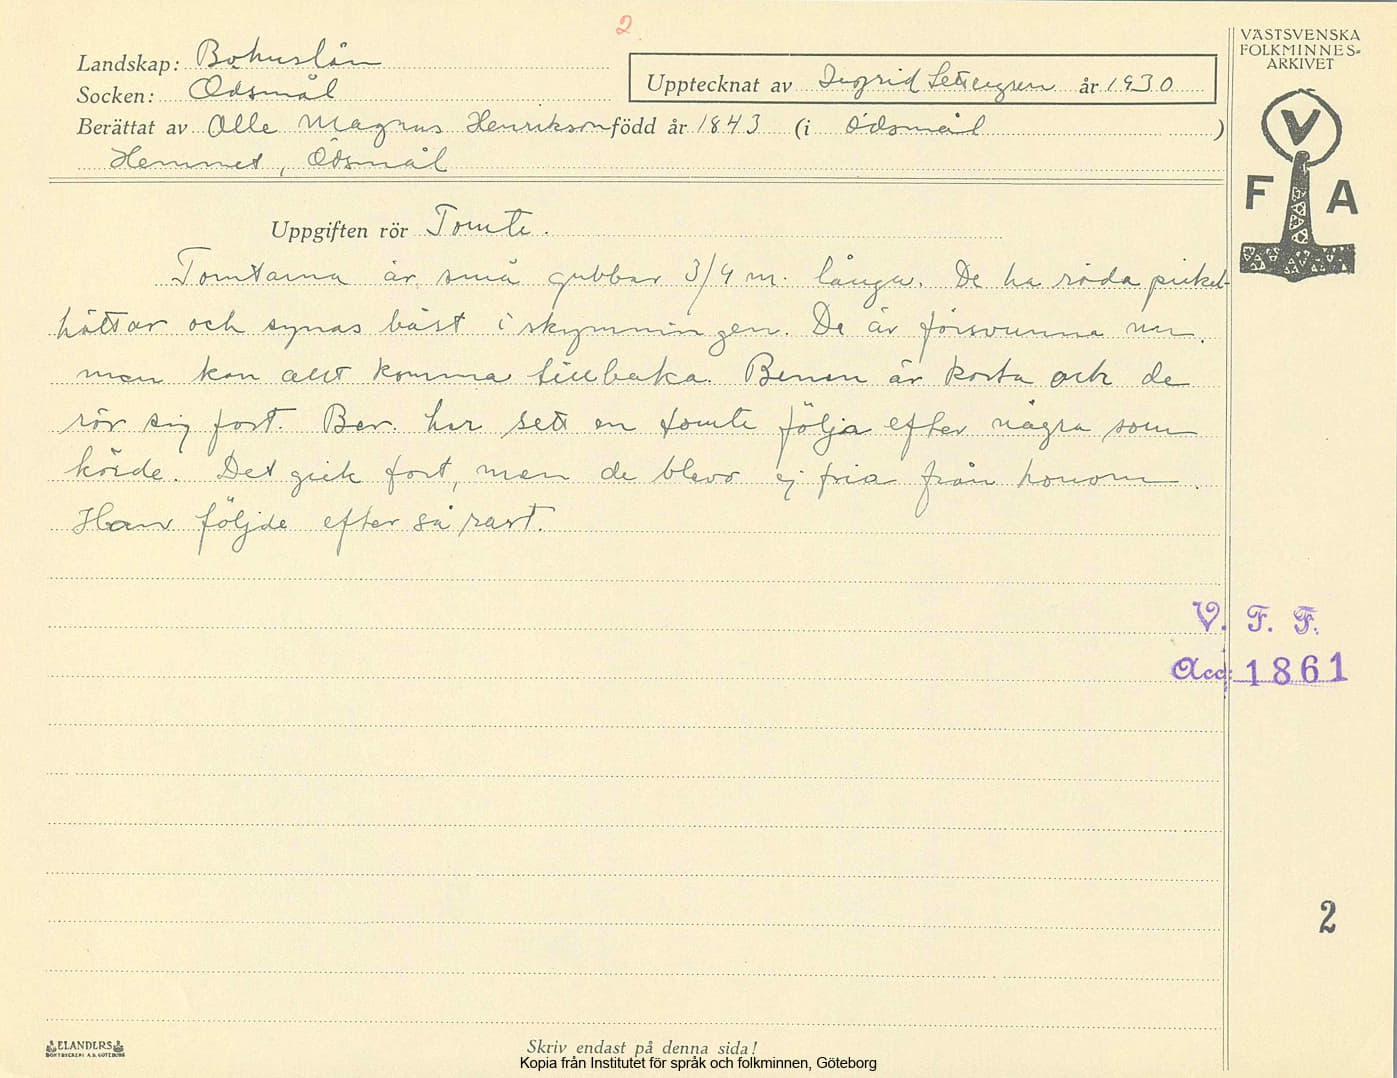 2
VÄSTSVENSKA
FOLKMINNES-
ARKIVET
Landskap: Bohuslän
Upptecknat av Ingrid år 1930
Socken: Ödsmål
Berättat av Olle Magnus Henrikson född år 1843 (i Ödsmål )
Hemmet, Ödsmål
V
F A
Uppgiften rör Tomte.
Tomtarna är små gubbar 3/4 m. långa. De ha röda pickel-
hättor och synas bäst i skymningen. De är försvunna nu,
men kan allt komma tillbaka. Benen är korta och de
rör sig fort. Ber. har sett en tomte följa efter några som
körde. Det gick fort, men de blevo ej fria från honom.
Han följde efter så rart.
V. F. F.
Acc: 1861
2
ELANDERS
BOKTRYCKERI A.B. GÖTEBORG
Skriv endast på denna sida!
Kopia från Institutet för språk och folkminnen, Göteborg